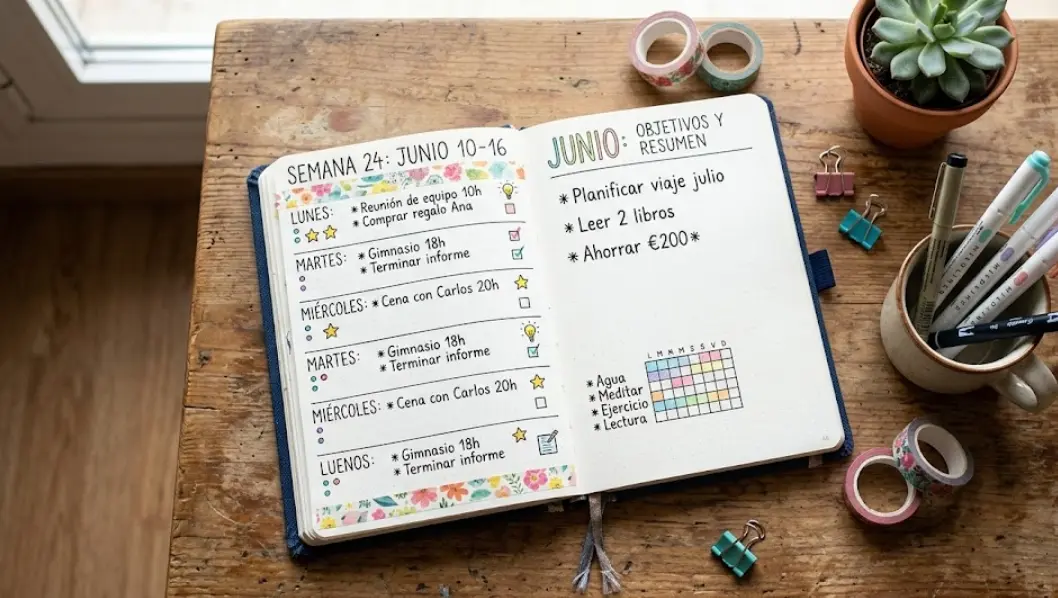 SEMANA 24: JUNIO 10-16
LUNES: * Reunión de equipo 10h
* Comprar regalo Ana
MARTES: * Gimnasio 18h
* Terminar informe
MIÉRCOLES: * Cena con Carlos 20h
MARTES: * Gimnasio 18h
* Terminar informe
MIÉRCOLES: * Cena con Carlos 20h
LUENOS: * Gimnasio 18h
* Terminar informe
JUNIO: OBJETIVOS Y
RESUMEN
* Planificar viaje julio
* Leer 2 libros
* Ahorrar €200*
L M M M S S V D
* Agua
* Meditar
* Ejercicio
* Lectura